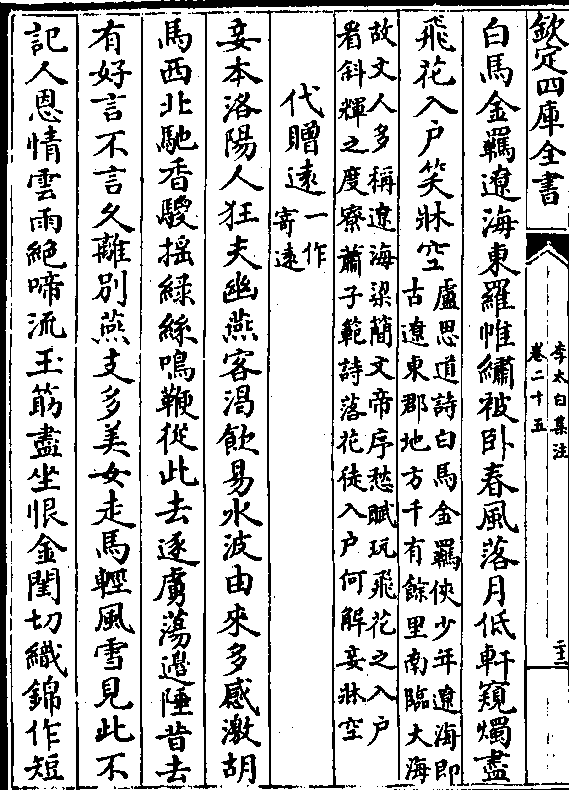 欽定四庫全書
李太白集注
卷二十五
白馬金羈遼海東羅帷繡被卧春風落月低軒窺燭盡
飛花入户笑牀空
盧思道詩白馬金羈俠少年遼海即
古遼東郡地方千有餘里南臨大海
故文人多稱遼海梁簡文帝序愁賦玩飛花之入户
看斜輝之度寮蕭子範詩落花徒入户何解妾牀空
代贈遠
一作
寄遠
妾本洛陽人狂夫幽燕客渴飲易水波由來多感激胡
馬西北馳香騣揺緑絲鳴鞭從此去逐虜蕩邉陲昔去
有好言不言久離别燕支多美女走馬輕風雪見此不
記人恩情雲雨絶啼流玉筯盡坐恨金閨切織錦作短